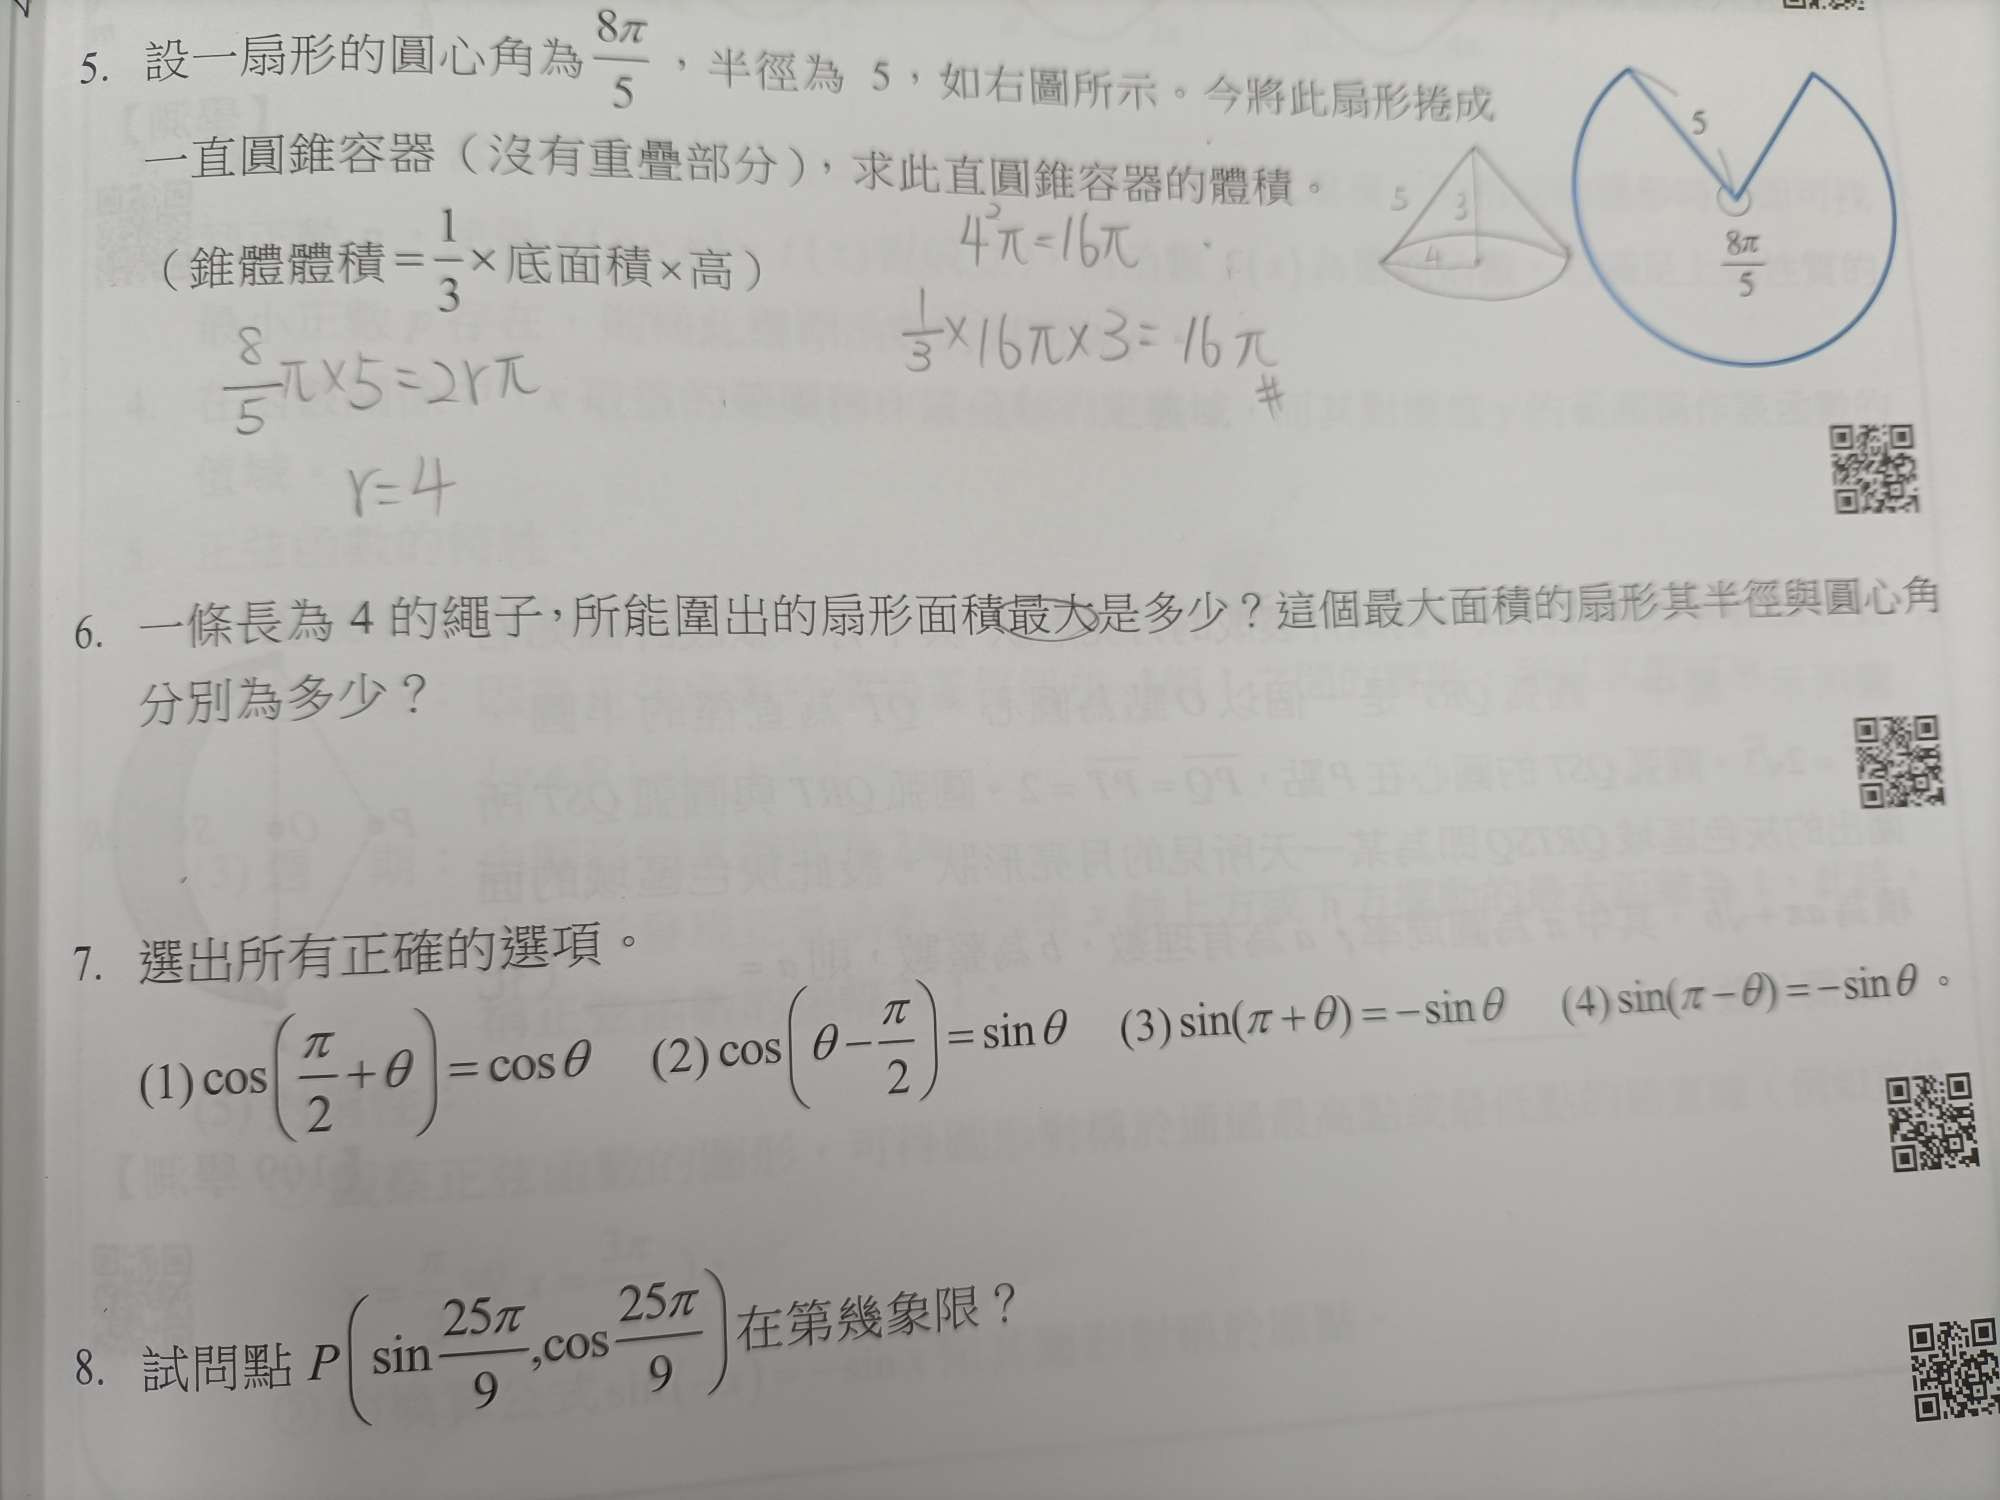 5. 設一扇形的圓心角為 8π/5，半徑為 5，如右圖所示。今將此扇形捲成
一直圓錐容器（沒有重疊部分），求此直圓錐容器的體積。
（錐體體積＝1/3×底面積×高）
4²π=16π
1/3×16π×3=16π
#
8/5π×5=2rπ
r=4
5
3
4
5
8π/5
6. 一條長為 4 的繩子，所能圍出的扇形面積最大是多少？這個最大面積的扇形其半徑與圓心角
分別為多少？
7. 選出所有正確的選項。
(1) cos(π/2+θ)=cosθ (2) cos(θ−π/2)=sinθ (3) sin(π+θ)=−sinθ (4) sin(π−θ)=−sinθ。
8. 試問點 P(sin 25π/9, cos 25π/9) 在第幾象限？